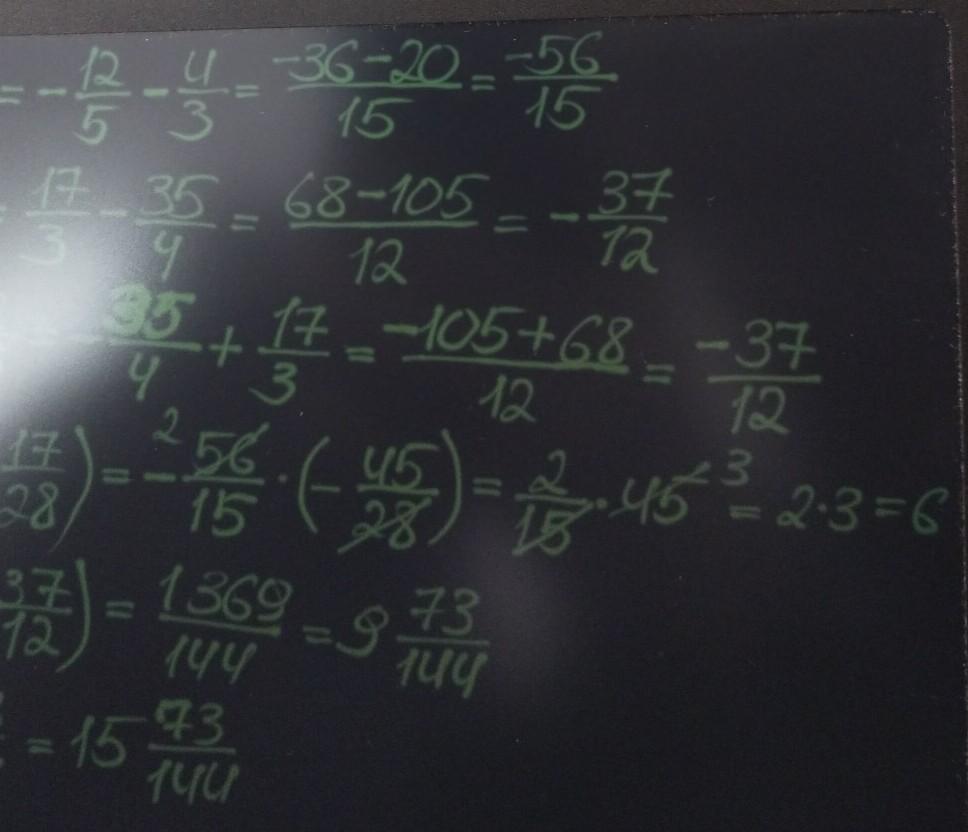 = - 12/5 - 4/3 = -36-20/15 = -56/15
= 17/3 - 35/4 = 68-105/12 = - 37/12
= - 35/4 + 17/3 = -105+68/12 = -37/12
17/28) = - 2 56/15 · (- 45/28) = 2/15 · 45 3 = 2·3 = 6
37/12) = 1369/144 = 9 73/144
= 15 73/144